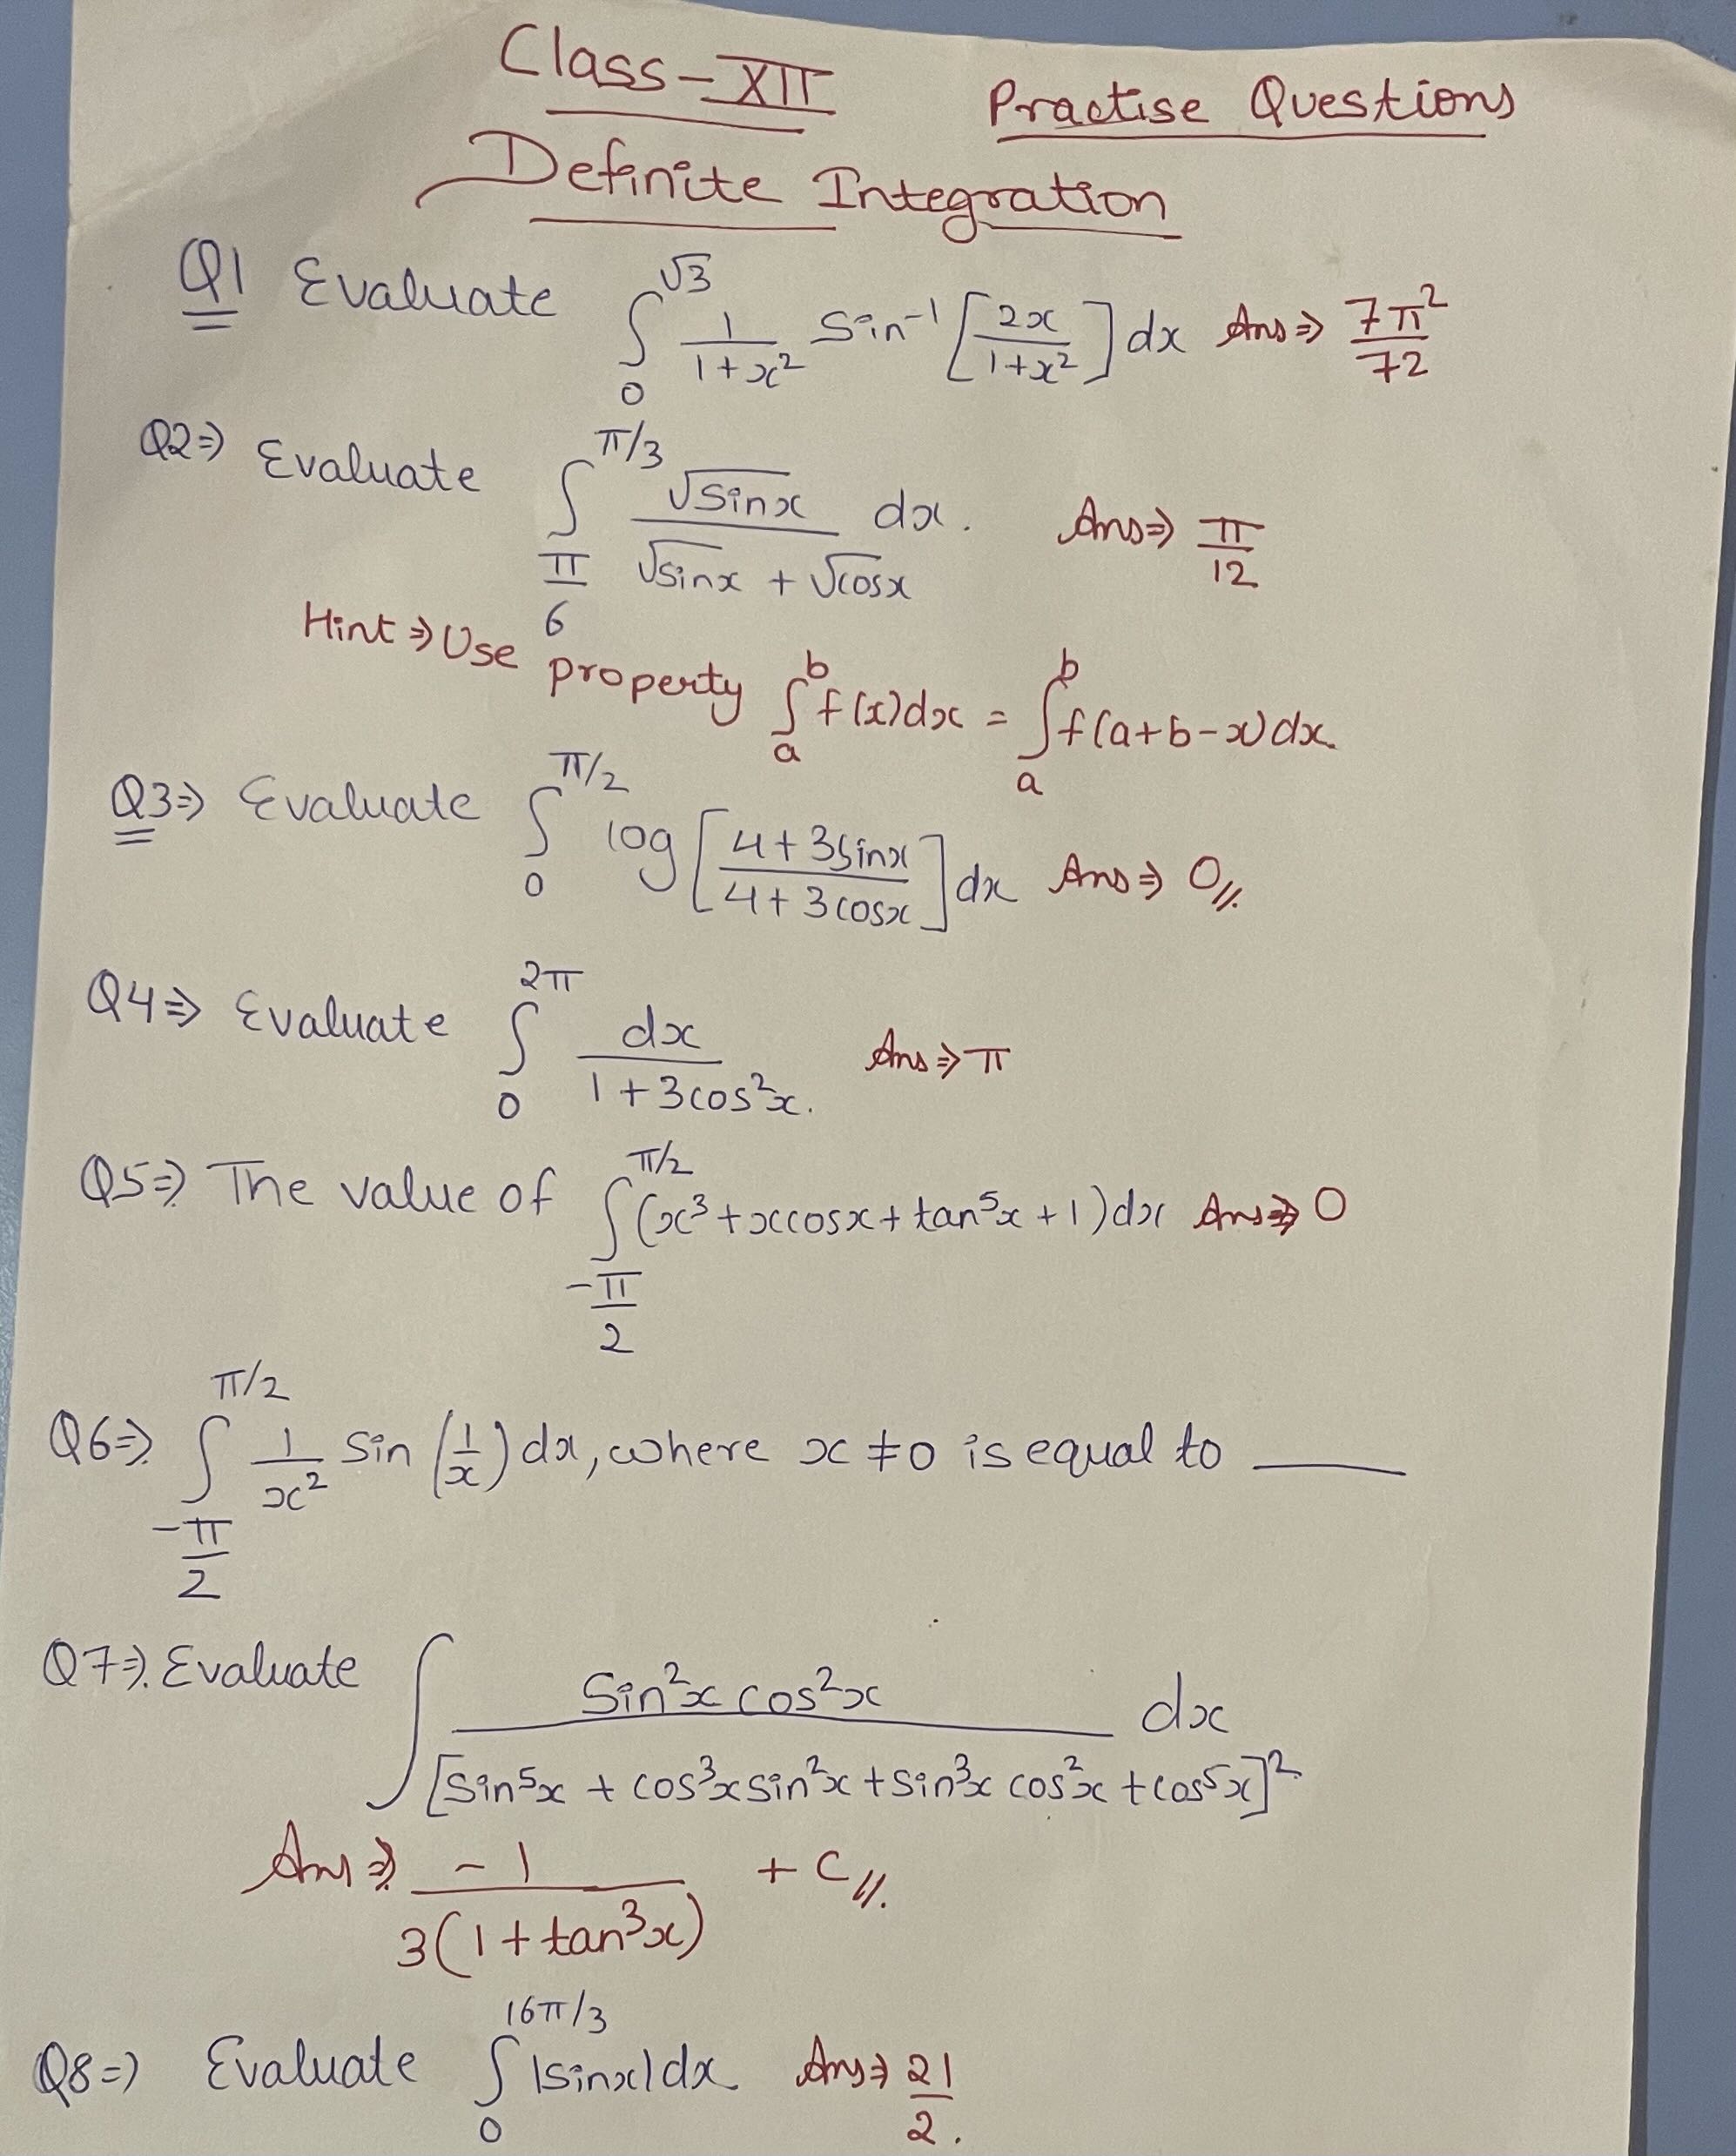 Class-XII Practise Questions
Definite Integration
Q1 Evaluate ∫₀^√3 1/(1+x²) Sin⁻¹[2x/(1+x²)] dx Ans⇒ 7π²/72
Q2⇒ Evaluate ∫_{π/6}^{π/3} √sinx/(√sinx + √cosx) dx. Ans⇒ π/12
Hint⇒Use property ∫ₐᵇ f(x)dx = ∫ₐᵇ f(a+b-x)dx.
Q3⇒ Evaluate ∫₀^{π/2} log[(4+3sinx)/(4+3cosx)]dx Ans⇒ 0//.
Q4⇒ Evaluate ∫₀^{2π} dx/(1+3cos²x). Ans⇒π
Q5⇒ The value of ∫_{-π/2}^{π/2} (x³+xcosx+tan⁵x+1)dx Ans⇒ 0
Q6⇒ ∫_{-π/2}^{π/2} 1/x² Sin(1/x)dx, where x≠0 is equal to ____
Q7⇒. Evaluate ∫ Sin²x cos²x/[Sin⁵x + cos³x sin²x + sin³x cos²x + cos⁵x]² dx
Ans⇒ -1/(3(1+tan³x)) + C//.
Q8⇒ Evaluate ∫₀^{16π/3} |sinx|dx Ans⇒ 21/2.